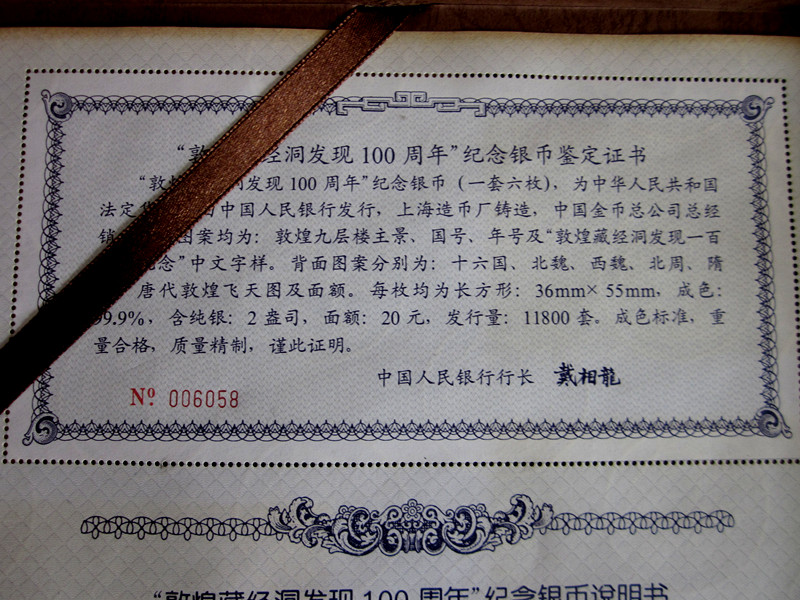 “敦 经洞发现 100 周年”纪念银币鉴定证书
“敦 洞发现 100 周年”纪念银币（一套六枚），为中华人民共和国
法定货 由中国人民银行发行，上海造币厂铸造，中国金币总公司总经
销 图案均为：敦煌九层楼主景、国号、年号及“敦煌藏经洞发现一百
念”中文字样。背面图案分别为：十六国、北魏、西魏、北周、隋
唐代敦煌飞天图及面额。每枚均为长方形：36mm×55mm，成色：
99.9%，含纯银：2 盎司，面额：20 元，发行量：11800 套。成色标准，重
量合格，质量精制，谨此证明。
中国人民银行行长 戴相龍
Nº 006058
“敦煌藏经洞发现 100 周年”纪念银币说明书